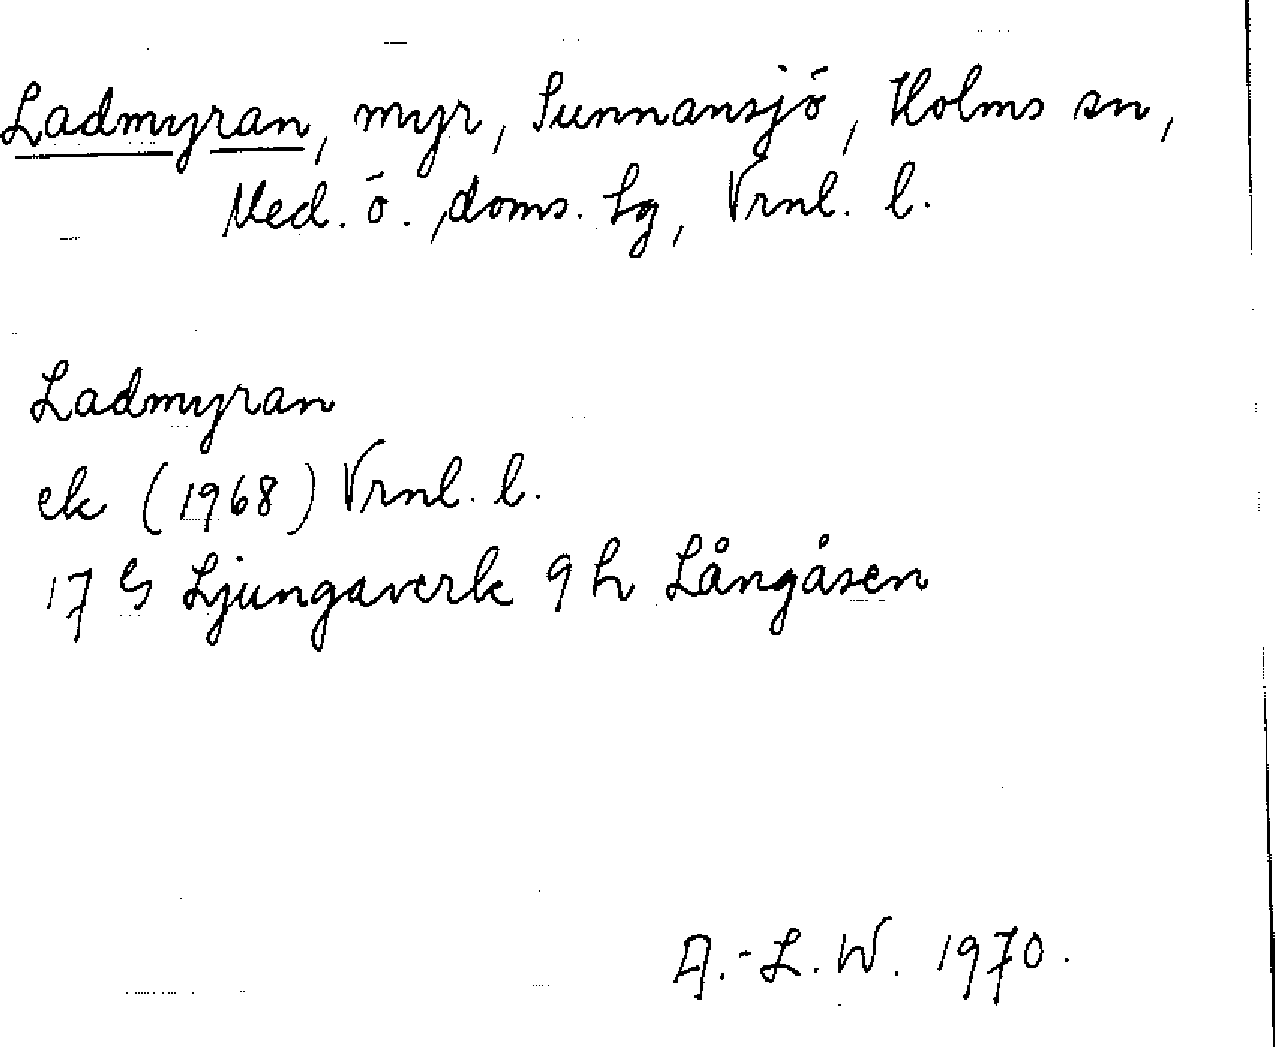 Ladmyran, myr, Sunnansjö, Holms sn,
Med. ö. doms. hg, Vrnl. l.
Ladmyran
ek (1968) Vrnl. l.
17 G Ljungaverk 9 h Långåsen
A.-L. W. 1970.